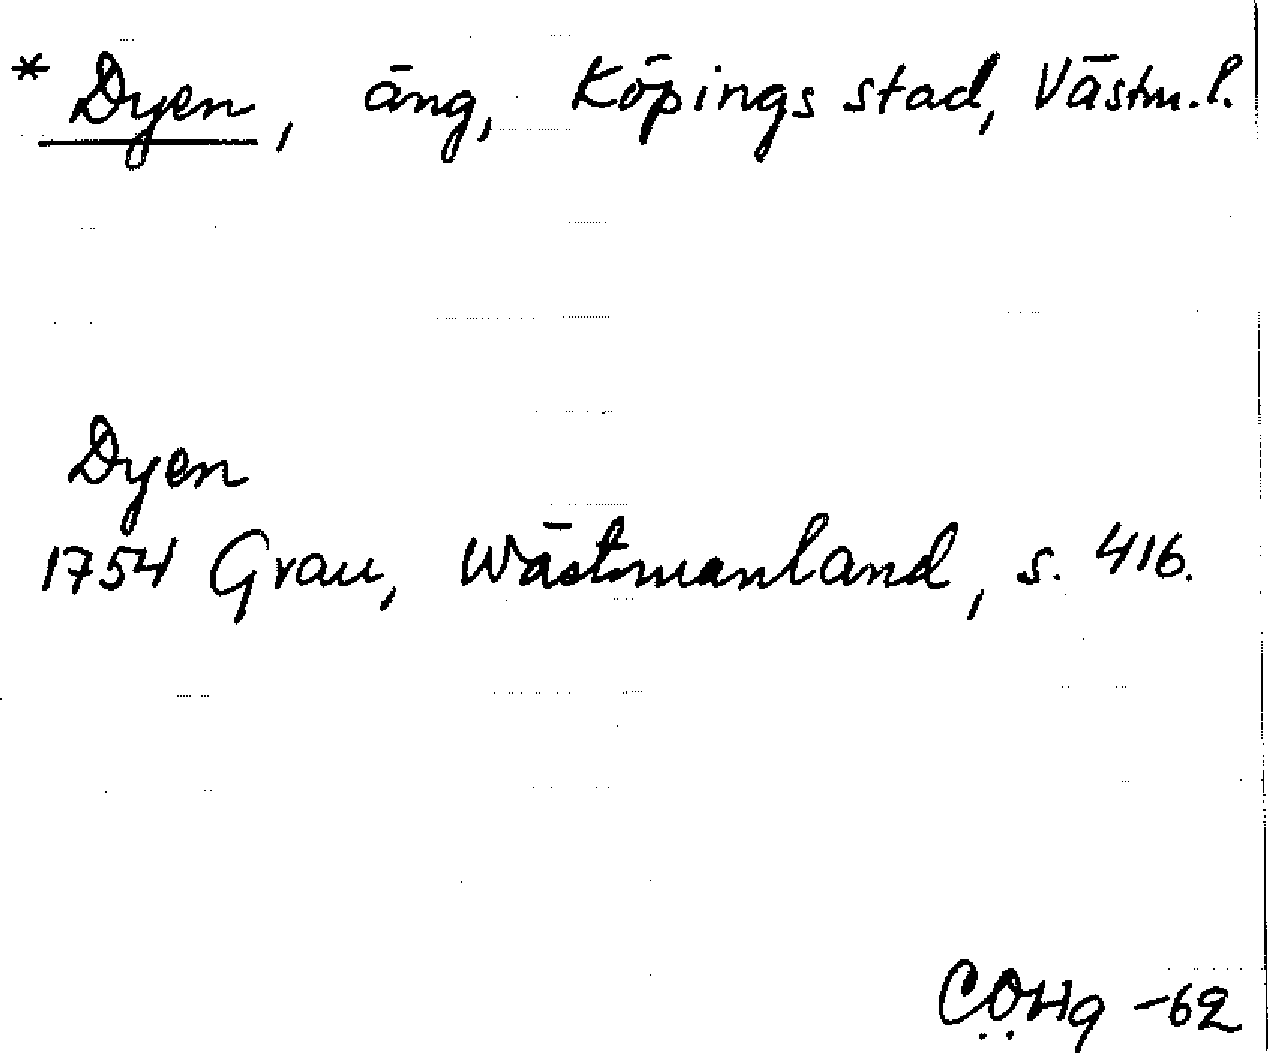 * Dyen, äng, Köpings stad, Västm. l.
Dyen
1754 Grau, Wästmanland, s. 416.
CÖHg -62